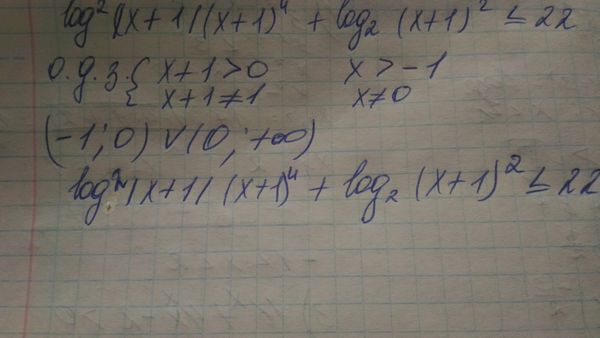 log² |(x+1|(x+1)⁴ + log₂ (x+1)² ≤ 22
О.Д.З. { x+1>0 x > -1
x+1≠1 x≠0
(-1; 0) ∨ (0; +∞)
log²|x+1| (x+1)⁴ + log₂ (x+1)² ≤ 22